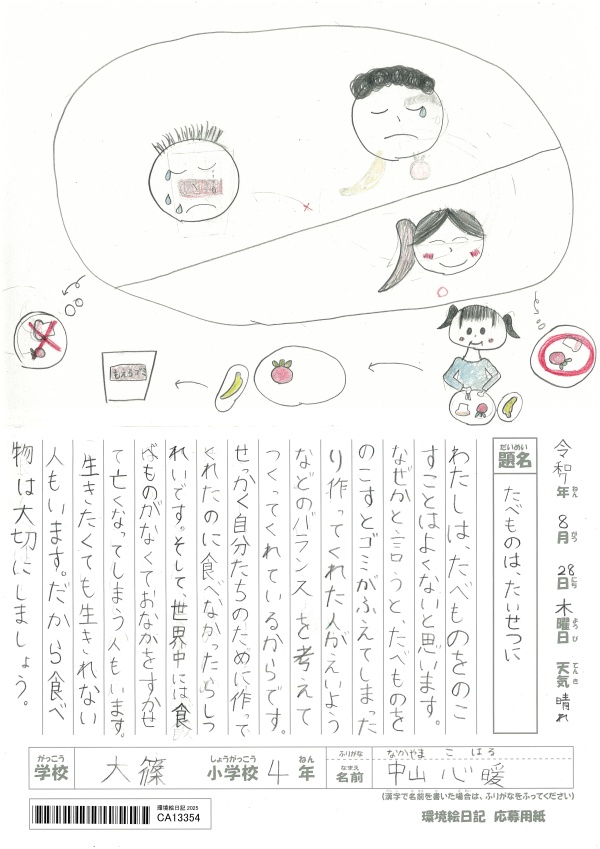 もえるゴミ
令和7年 8月 28日 木曜日 天気 晴れ
ねん がつ にち ようび てんき
だいめい
題名
たべものは、たいせつに
わたしは、たべものをのこ
すことはよくないと思います。
なぜかと言うと、たべものを
のこすとゴミがふえてしまった
り作ってくれた人がえいよう
などのバランスを考えて
つくってくれているからです。
せっかく自分たちのために作って
くれたのに食べなかったらしつ
れいです。そして、世界中には食
べものがなくておなかをすかせ
て亡くなってしまう人もいます。
生きたくても生きれない
人もいます。だから食べ
物は大切にしましょう。
がっこう しょうがっこう ねん ふりがな なかやま こはる
学校 大篠 小学校 4年 なまえ 名前 中山 心暖
(漢字で名前を書いた場合は、ふりがなをふってください)
環境絵日記 2025
CA13354
環境絵日記 応募用紙